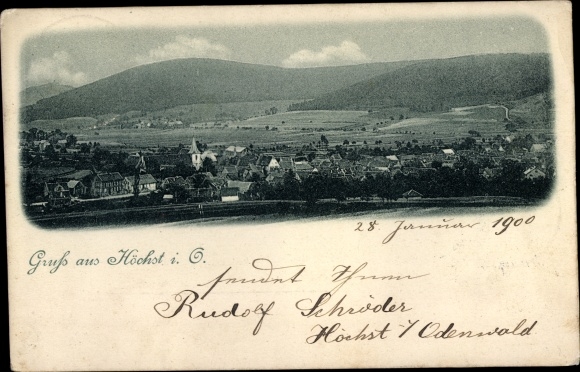 28 Januar 1900
Gruß aus Höchst i. O.
sendet Ihnen
Rudolf Schröder
Höchst i/ Odenwald